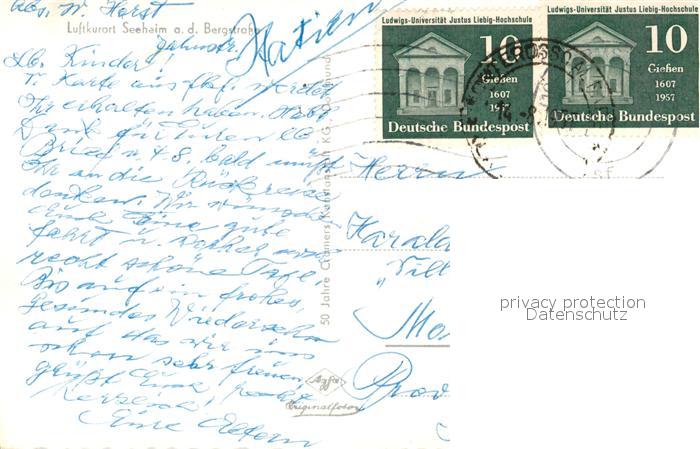 Abs. W. Horst
Luftkurort Seeheim a. d. Bergstraße
Jahnstr.
Italien
Lb. Kinder!
Karte werdet
Ihr erhalten haben.
Dank für Euren lb
Brief v. 4 8. bald müßt
Ihr an die Rückreise
denken. Wir wünschen
Euch eine gute
Fahrt u. vorher noch
recht schöne Tage.
Bis auf ein frohes,
gesundes Wiedersehn
auf das wir uns
schon sehr freuen,
grüßt Euch recht
herzlich
Eure Eltern
50 Jahre Cramers Kunstanstalt KG Dortmund
Agfa
Originalfoto
Ludwigs-Universität Justus Liebig-Hochschule
10
Gießen
1607
1957
Deutsche Bundespost
Ludwigs-Universität Justus Liebig-Hochschule
10
Gießen
1607
1957
Deutsche Bundespost
Herrn
Harald
"Vill
Mo
Prov
privacy protection
Datenschutz